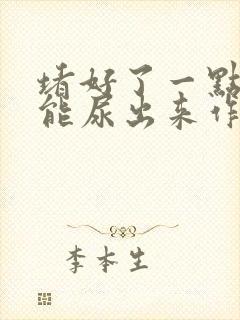 堵好了一點
能尿出来作
李本生